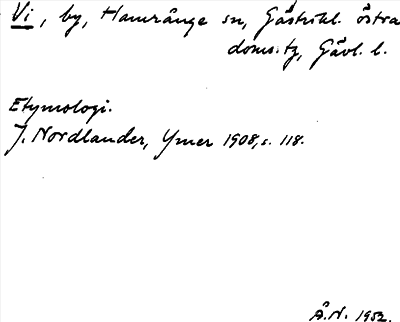 Vi, by, Hamrånge sn, Gästrikl. östra
doms.tg, Gävl. l.
Etymologi.
J. Nordlander, Ymer 1908, s. 118.
Å.N. 1952.